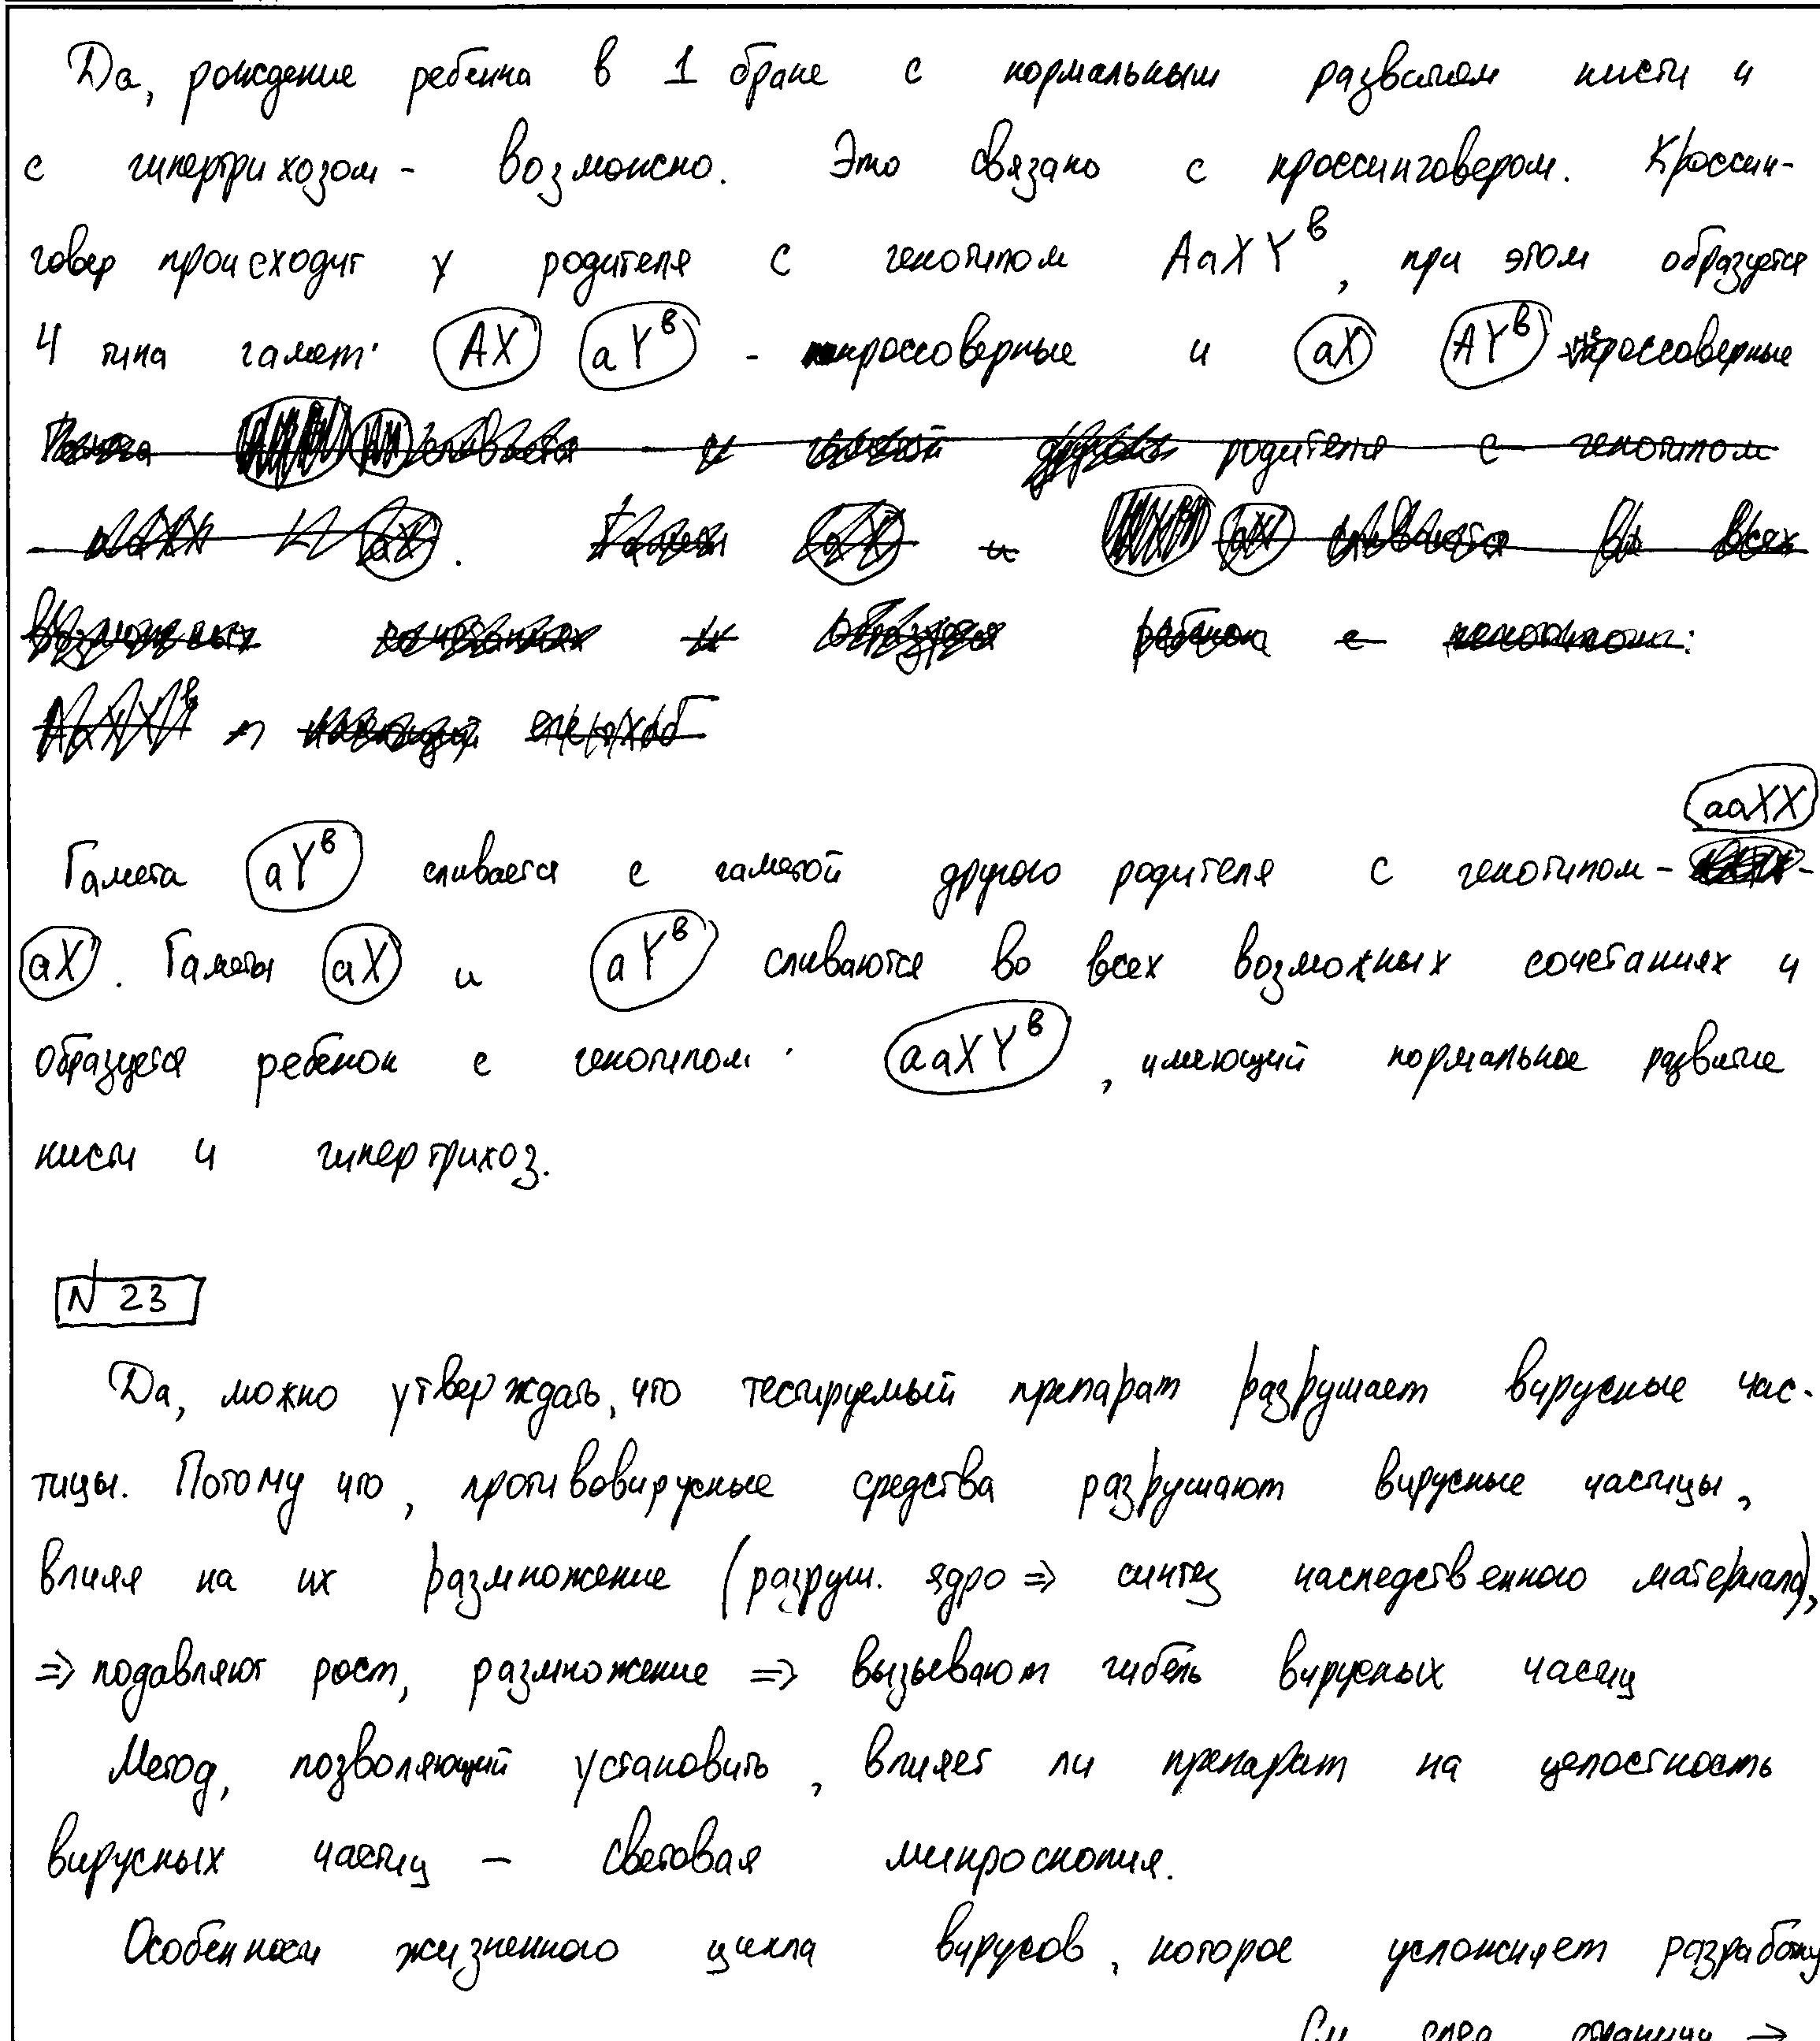 Да, рождение ребенка в 1 браке с нормальным развитием кисти и
с гипертрихозом - возможно. Это связано с кроссинговером. Кроссин-
говер происходит у родителя с генотипом AaXYᵇ, при этом образуется
4 типа гамет: AX aYᵇ - кроссоверные и aX AYᵇ - кроссоверные
родителя с генотипом
aX
ребенок с
aaXX
Гамета aYᵇ сливается с гаметой другого родителя с генотипом -
aX. Гаметы aX и aYᵇ сливаются во всех возможных сочетаниях и
образуется ребенок с генотипом: aaXYᵇ, имеющий нормальное развитие
кисти и гипертрихоз.
N 23
Да, можно утверждать, что тестируемый препарат разрушает вирусные час-
тицы. Потому что, противовирусные средства разрушают вирусные частицы,
влияя на их размножение (разруш. ядро => синтез наследственного материала),
=> подавляют рост, размножение => вызывают гибель вирусных частиц
Метод, позволяющий установить, влияет ли препарат на целостность
вирусных частиц – световая микроскопия.
Особенности жизненного цикла вирусов, которое усложняет разработку
См след страницу →